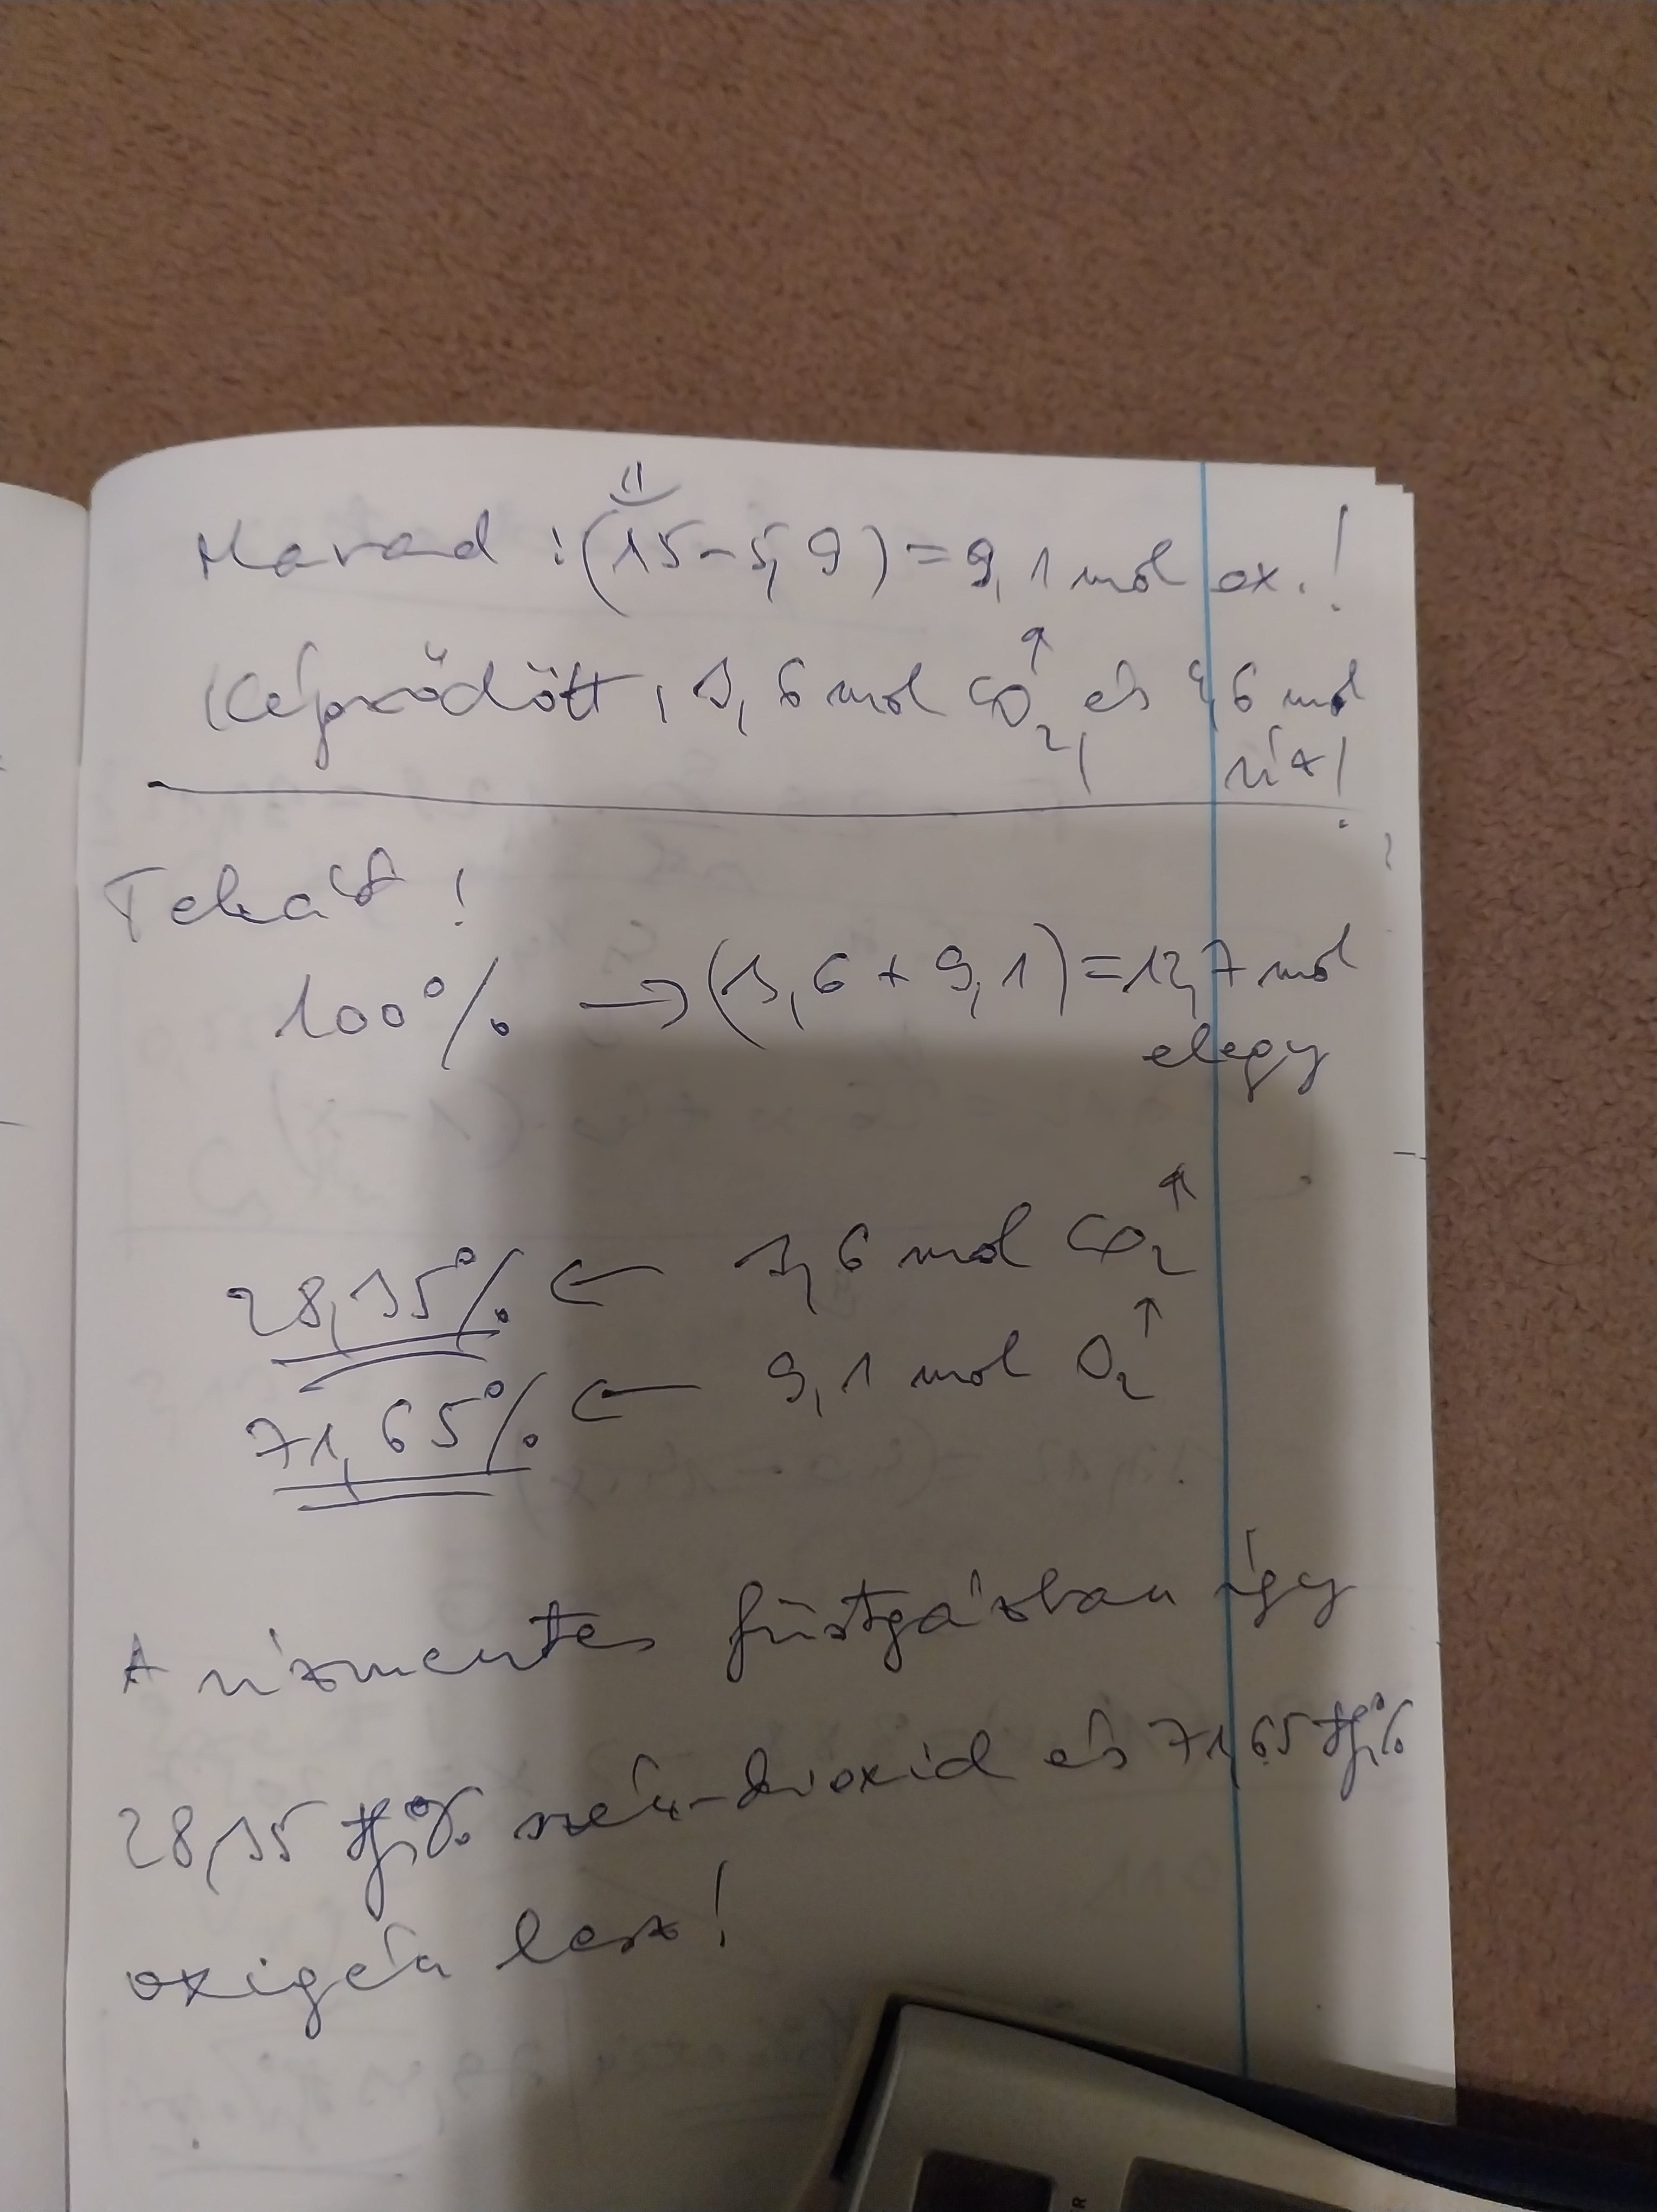 Marad : (15-5,9) = 9,1 mol ox.!
Képződött, 3,6 mol CO₂↑, és 4,6 mol
víz!
Tehát!
100% → (3,6 + 9,1) = 12,7 mol
elegy
28,35% ← 3,6 mol CO₂↑
71,65% ← 9,1 mol O₂↑
A vízmentes füstgázban így
28,35 tf.% szén-dioxid és 71,65 tf.%
oxigén lesz!